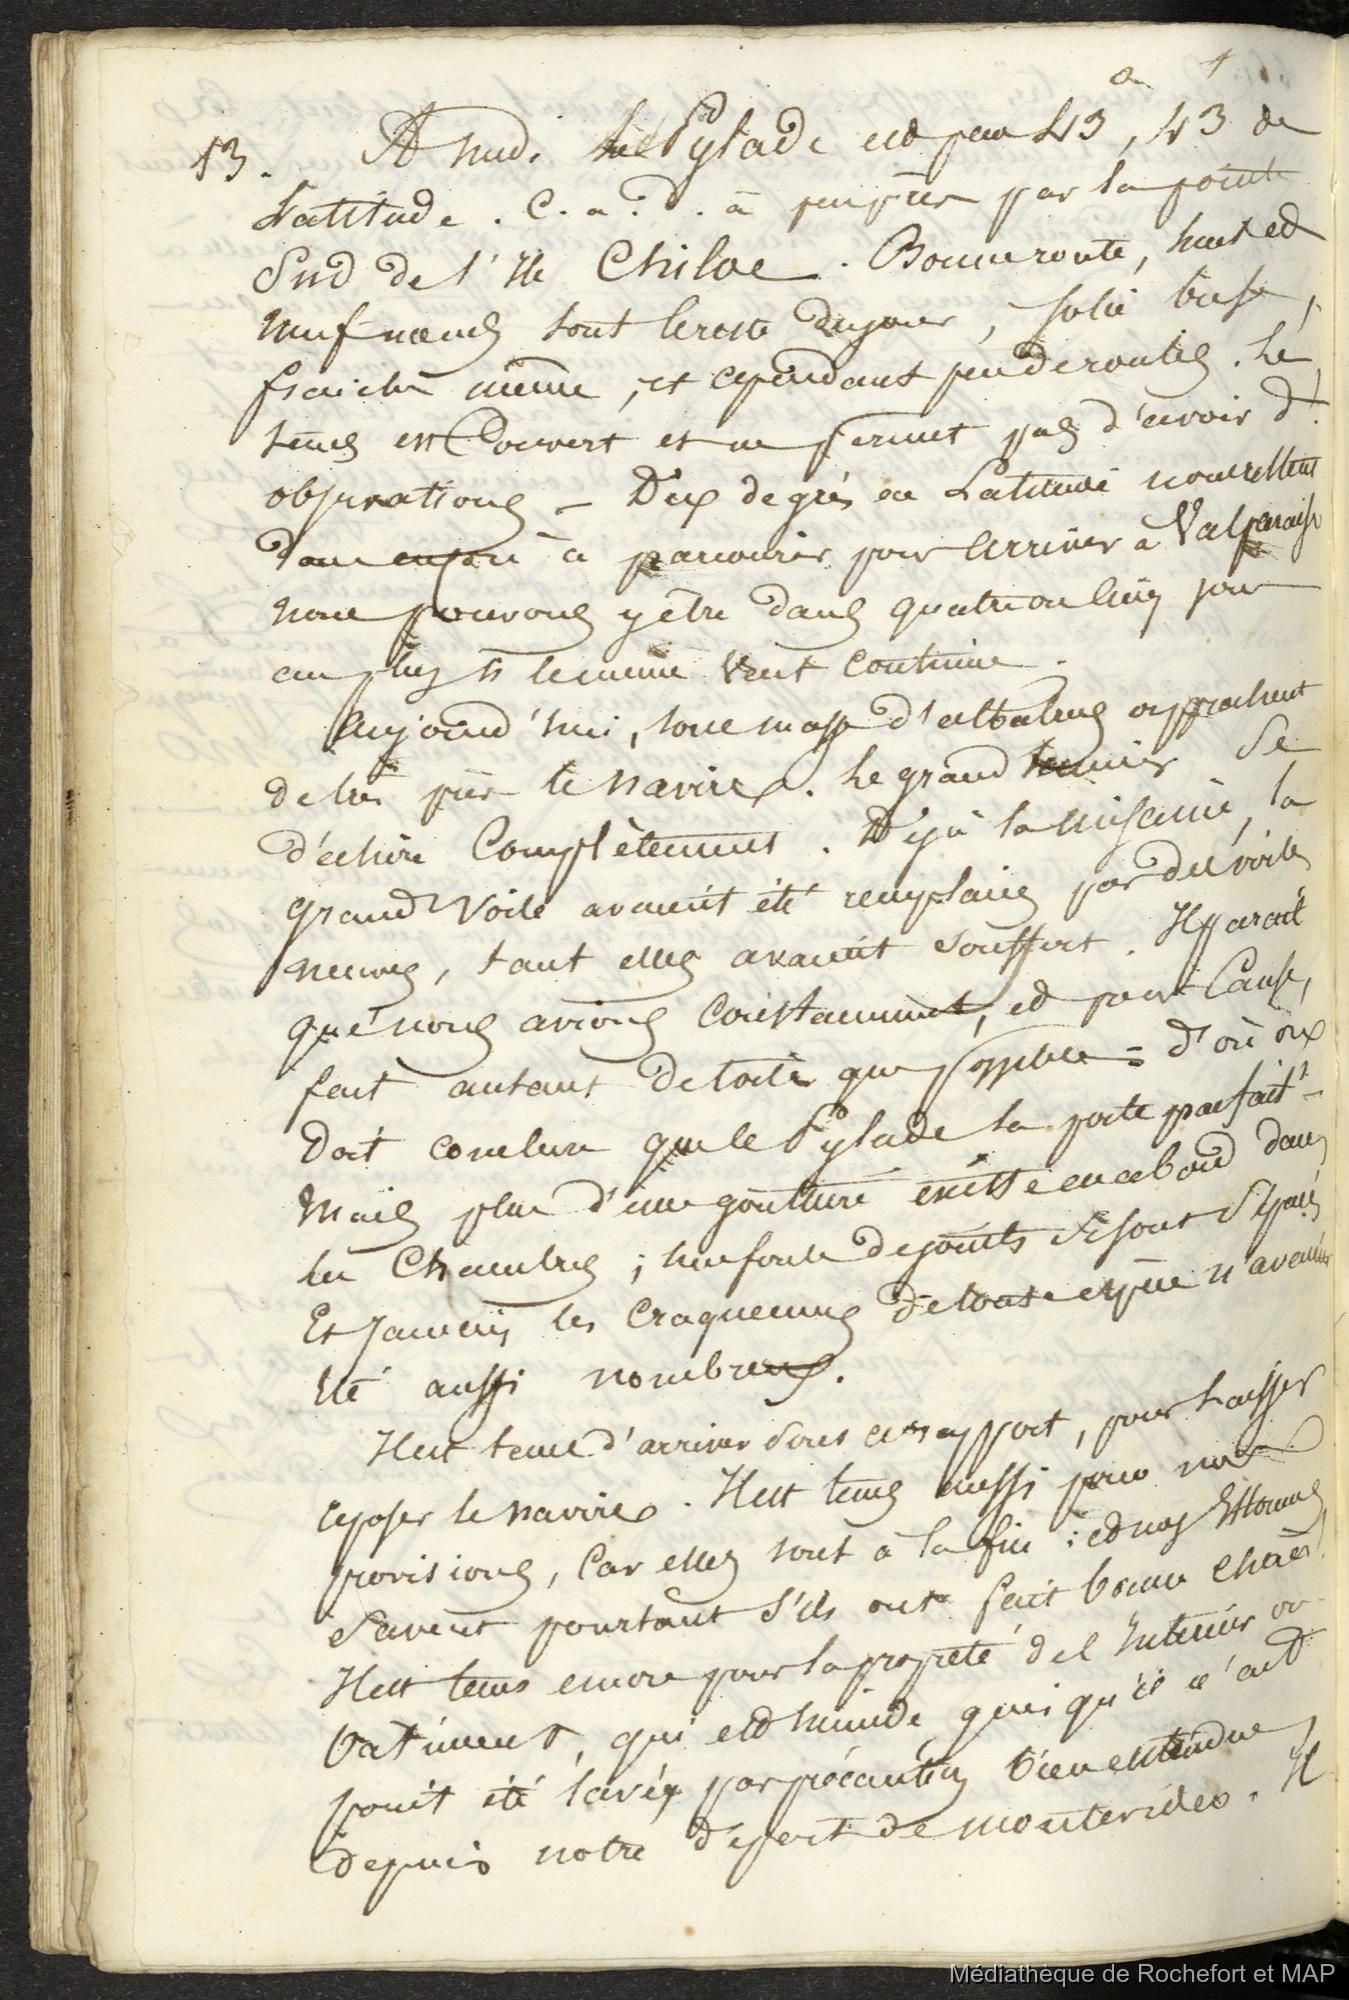 13. A midi le Pylade est par 43°, 43' de
Latitude . C. a. d. à peu près par la pointe
Sud de l'Ile Chiloe . Bonne route, huit et
neuf nœuds tout le reste du jour, jolie brise,
fraiche même, et cependant peu de roulis. Le
tems est Couvert et ne permet pas d'avoir d'
observations - Dix degrés en Latitude nous restent
donc encore à parcourir pour arriver à Valparaiso
nous pouvons y être dans quatre ou cinq jours
au plus si le même vent continue .
Aujourd'hui, une masse d'albatros approchent
de très près le navire. Le grand hunier se
déchire Complètement . Déjà la misaine, la
grand Voile avaient été remplacées par des voiles
neuves, tant elles avaient souffert . Il parait
que nous avions constamment, et pour Cause,
fait autant de toile que possible = d'où on
Doit conclure que le Pylade la porte parfait.t
Mais plus d'une gouttière existe en abord dans
les Chambres ; une foule de joints se sont séparés
Et jamais les Craquemens de toute espèce n'avaient
été aussi nombreux.
Il est tems d'arriver sous ce rapport, pour laisser
reposer le navire . Il est tems aussi pour nos
provisions, Car elles sont à la fin : et nos Estomacs
savent pourtant s'ils ont fait bonne chère !
Il est tems encore pour la propreté de l'Intérieur du
batiment, qui est humide, quoiqu'il n'ait
point été lavé, par précaution bien entendue,
depuis notre départ de Montevideo . Il
Médiathèque de Rochefort et MAP